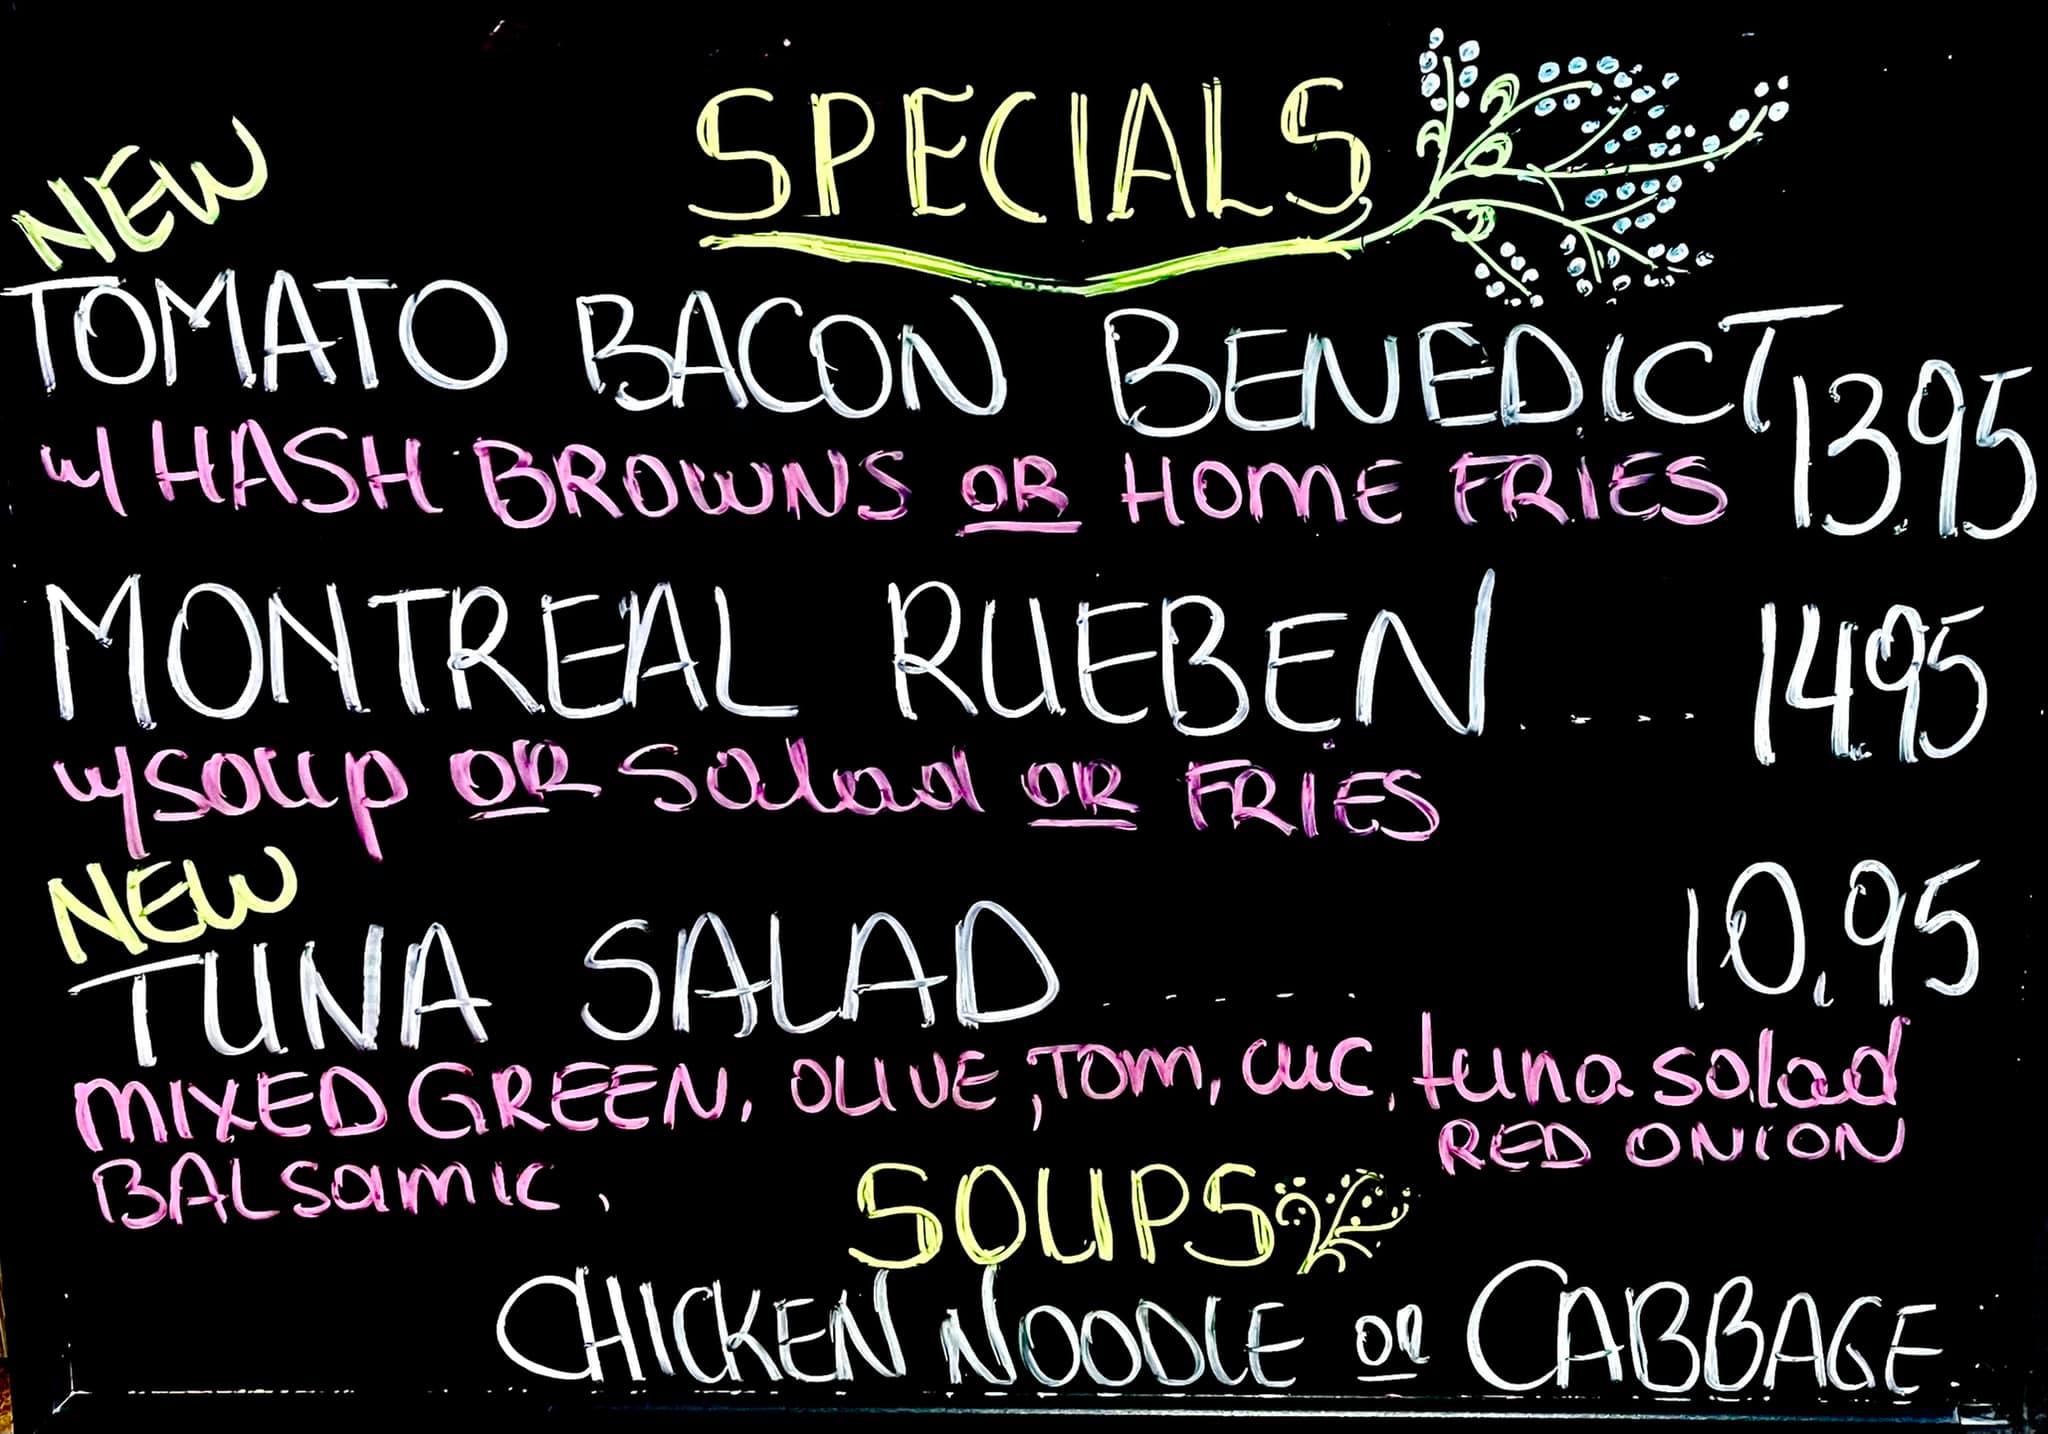 SPECIALS
NEW
TOMATO BACON BENEDICT 13.95
w/ HASH BROWNS OR HOME FRIES
MONTREAL RUEBEN..... 14.95
w/ soup OR salad OR FRIES
NEW
TUNA SALAD ....... 10.95
MIXED GREEN, OLIVE, TOM, CUC, tuna salad
RED ONION
BALSAMIC,
SOUPS
CHICKEN NOODLE OR CABBAGE